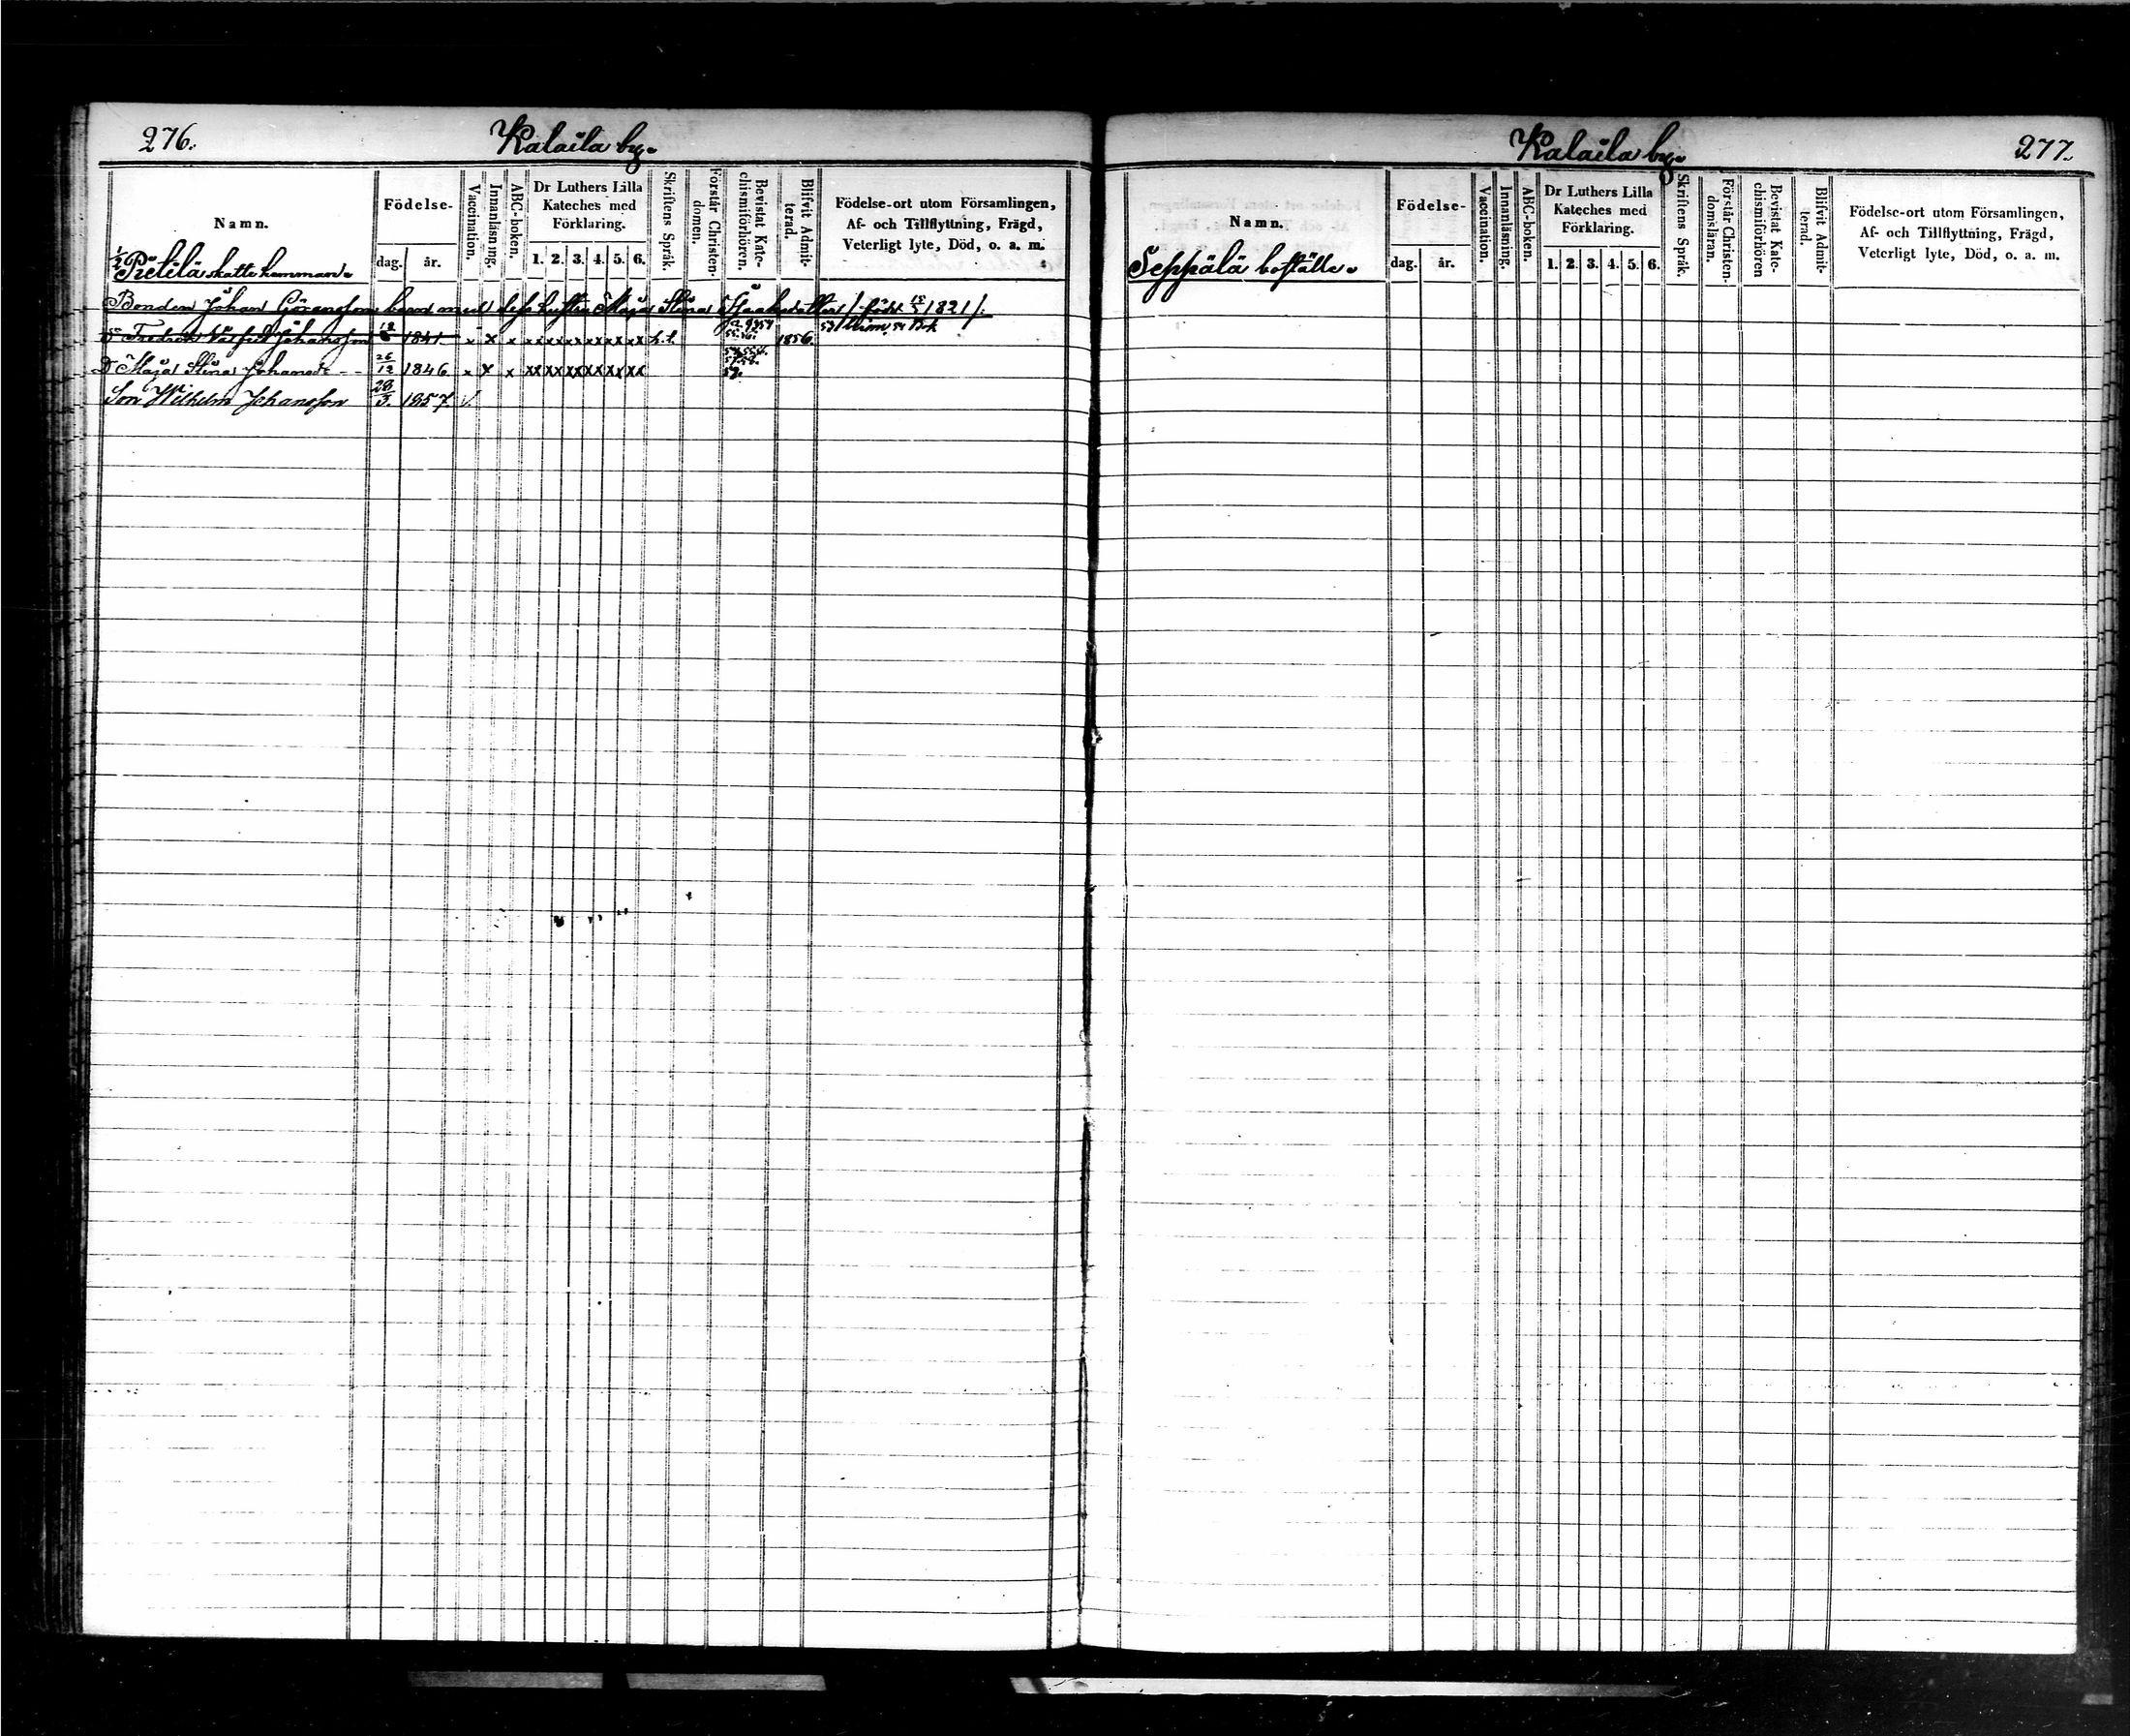 276.
Kalaila by.
Namn.
Födelse-
dag. år.
Vaccination.
Innanläsning.
ABC-boken.
Dr Luthers Lilla
Kateches med
Förklaring.
1. 2. 3. 4. 5. 6.
Skriftens Språk.
Förstår Christen-
domen.
Bevistat Kate-
chismiförhören.
Blifvit Admit-
terad.
Födelse-ort utom Församlingen,
Af- och Tillflyttning, Frägd,
Veterligt lyte, Död, o. a. m.
1/2 Pietilä skatte hemman.
Bonden Johan Göransson barn med dess hustru Maja Stina Isaaksdotter /: född 1821 /:
Fredrik Johansson 1841 x x x xx xx xx xx xx xx 1856.
D Maja Stina Johansdr - - 26/12 1846 x x x xx xx xx xx xx xx
Son Wilhelm Johansson 28/3. 1857.
Kalaila by.
277.
Namn.
Födelse-
dag. år.
Vaccination.
Innanläsning.
ABC-boken.
Dr Luthers Lilla
Kateches med
Förklaring.
1. 2. 3. 4. 5. 6.
Skriftens Språk.
Förstår Christen-
domsläran.
Bevistat Kate-
chismiförhören
Blifvit Admit-
terad.
Födelse-ort utom Församlingen,
Af- och Tillflyttning, Frägd,
Veterligt lyte, Död, o. a. m.
Seppälä boställe.